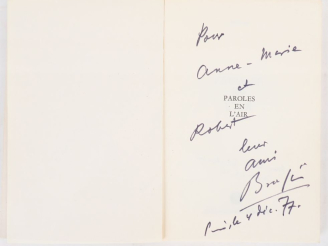 Pour
Anne-Marie
et
PAROLES
EN
L'AIR
Robert
leur
ami
le 4 déc. 77.